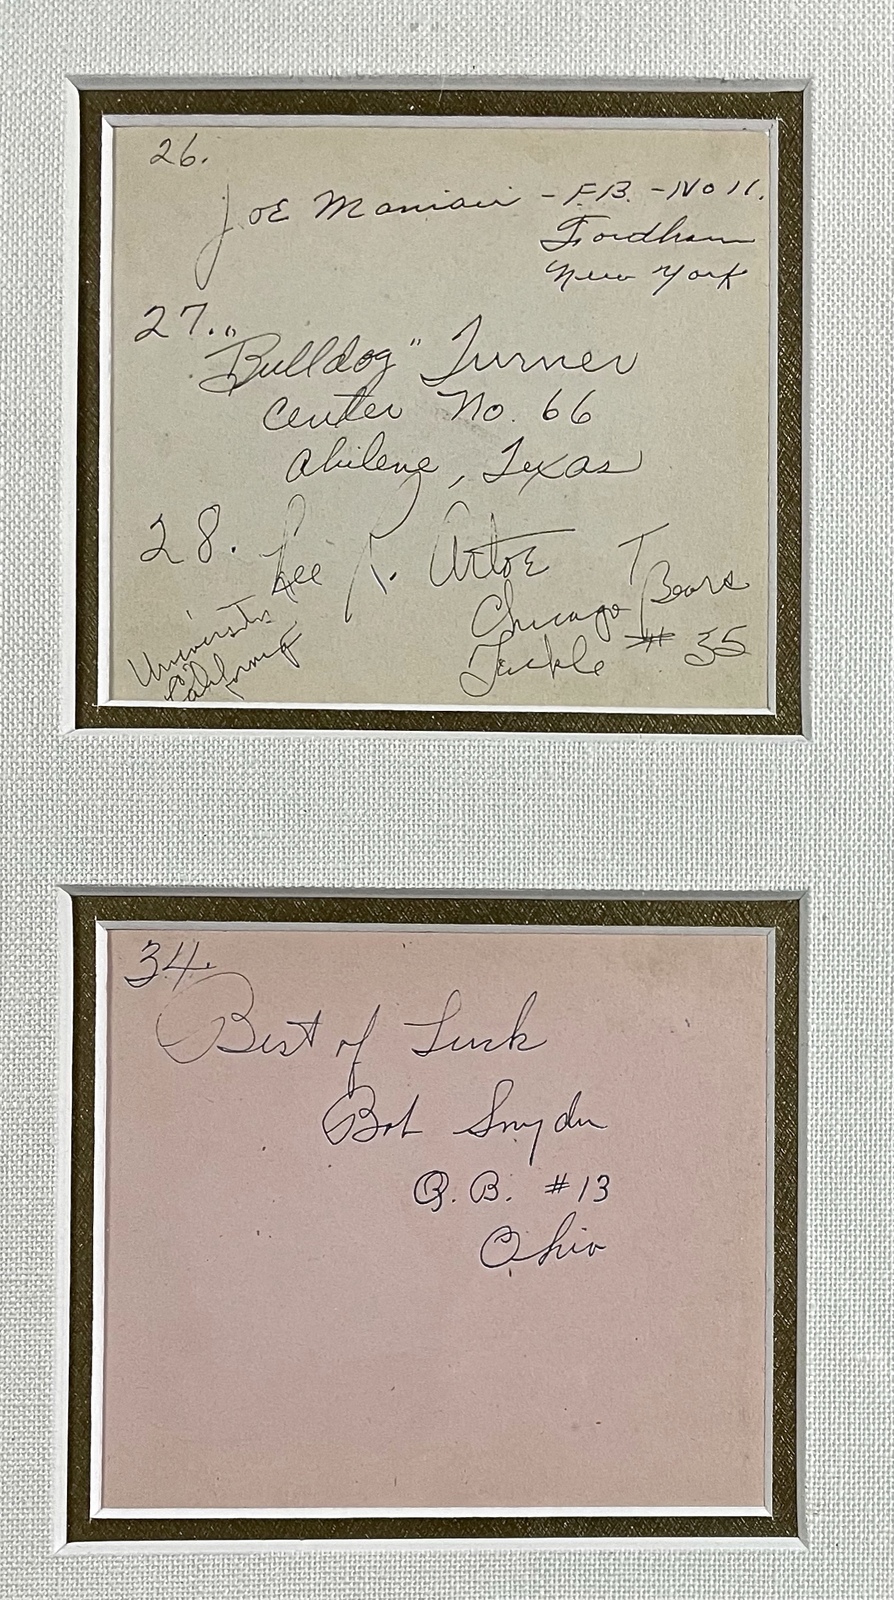 26.
Joe Maniaci - F.B. - No 11.
Fordham
New York
27. "Bulldog" Turner
Center No. 66
Abilene, Texas
28. Lee R. Artoe T
Chicago Bears
Tackle # 35
University
California
34.
Best of Luck
Bob Snyder
Q.B. #13
Ohio